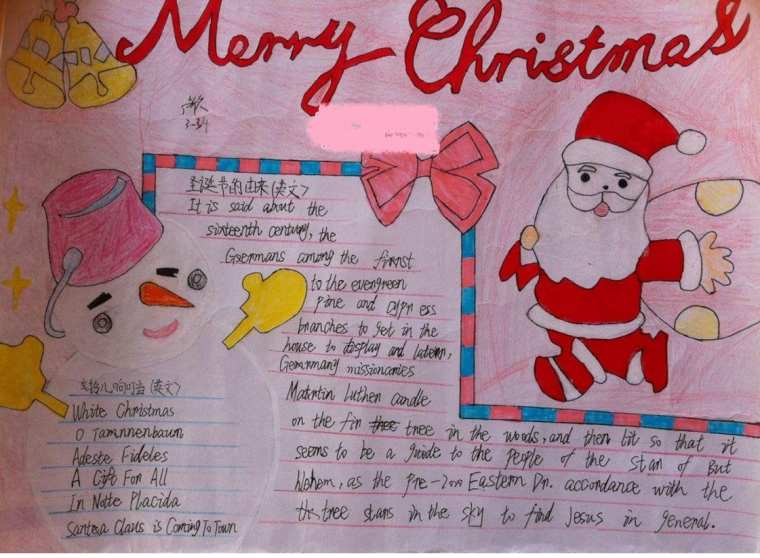 Merry Christmas
3-34
圣诞节的由来(英文)
It is said about the
sixteenth century, the
Gsermans among the firnst
to the evergreen
pine and cypr ess
branches to get in the
house to display and latern,
Germrmany missionaries
Matrtin Luthen candle
on the fin tree in the woods, and then lit so that it
seems to be a guide to the people of the stan of But
hlehem, as the pre-2000 Eastern Dr. accordance with the
the tree stars in the sky to find Jesus in general.
铃儿响叮当(英文)
White Christmas
O Tannnenbaum
Adeste Fideles
A Gift For All
In Notte Placida
Santrea Claus is Coming To Town